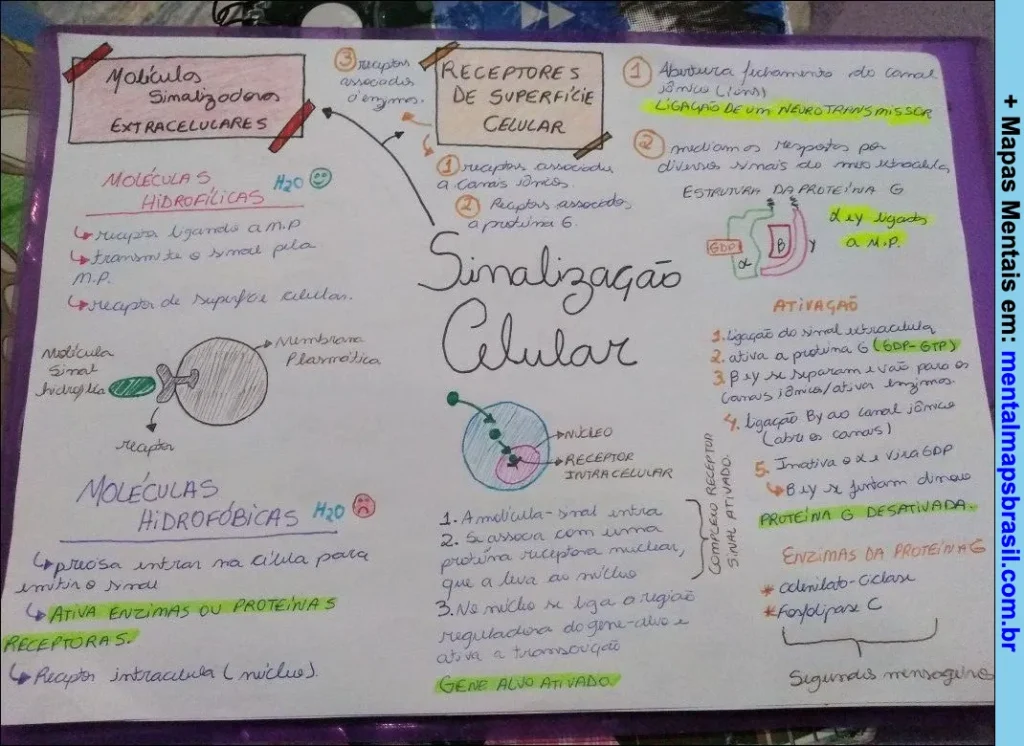 Moléculas
Sinalizadoras
EXTRACELULARES
MOLÉCULAS
HIDROFÍLICAS
H2O
receptor ligando a M.P
transmite o sinal pela
M.P.
receptor de superfície celular.
Molécula
Sinal
hidrofílica
Membrana
Plasmática
receptor
MOLÉCULAS
HIDROFÓBICAS
H2O
precisa entrar na célula para
emitir o sinal
ATIVA ENZIMAS OU PROTEÍNAS
RECEPTORAS.
Receptor intracelula (núcleo).
RECEPTORES
DE SUPERFÍCIE
CELULAR
3 receptors
associados
a enzimas.
1 receptors associados
a canais iônicos.
2 Receptors associados
a proteína G.
Sinalização
Celular
NÚCLEO
RECEPTOR
INTRACELULAR
1. A molécula-sinal entra
2. Se associa com uma
proteína receptora nuclear,
que a leva ao núcleo
3. No núcleo se liga a região
reguladora do gene-alvo e
ativa a transcrição
GENE ALVO ATIVADO
COMPLEXO RECEPTOR
SINAL ATIVADO.
1 Abertura fechamento do canal
iônico (íons)
LIGAÇÃO DE UM NEUROTRANSMISSOR
2 mediam as respostas por
diversos sinais do meio extracelula
ESTRUTURA DA PROTEÍNA G
GDP
α
β
γ
α e γ ligados
a M.P.
ATIVAÇÃO
1. Ligação do sinal extracelula
2. ativa a proteína G (GDP-GTP)
3. β e γ se separam e vão para os
canais iônicos/ativar enzimas
4. ligação βγ ao canal iônico
(abre os canais)
5. Inativa o α e vira GDP
β e γ se juntam de novo
PROTEÍNA G DESATIVADA.
ENZIMAS DA PROTEÍNA G
* adenilato-ciclase
* Fosfolipase C
Segundos mensageiros
+ Mapas Mentais em: mentalmapsbrasil.com.br